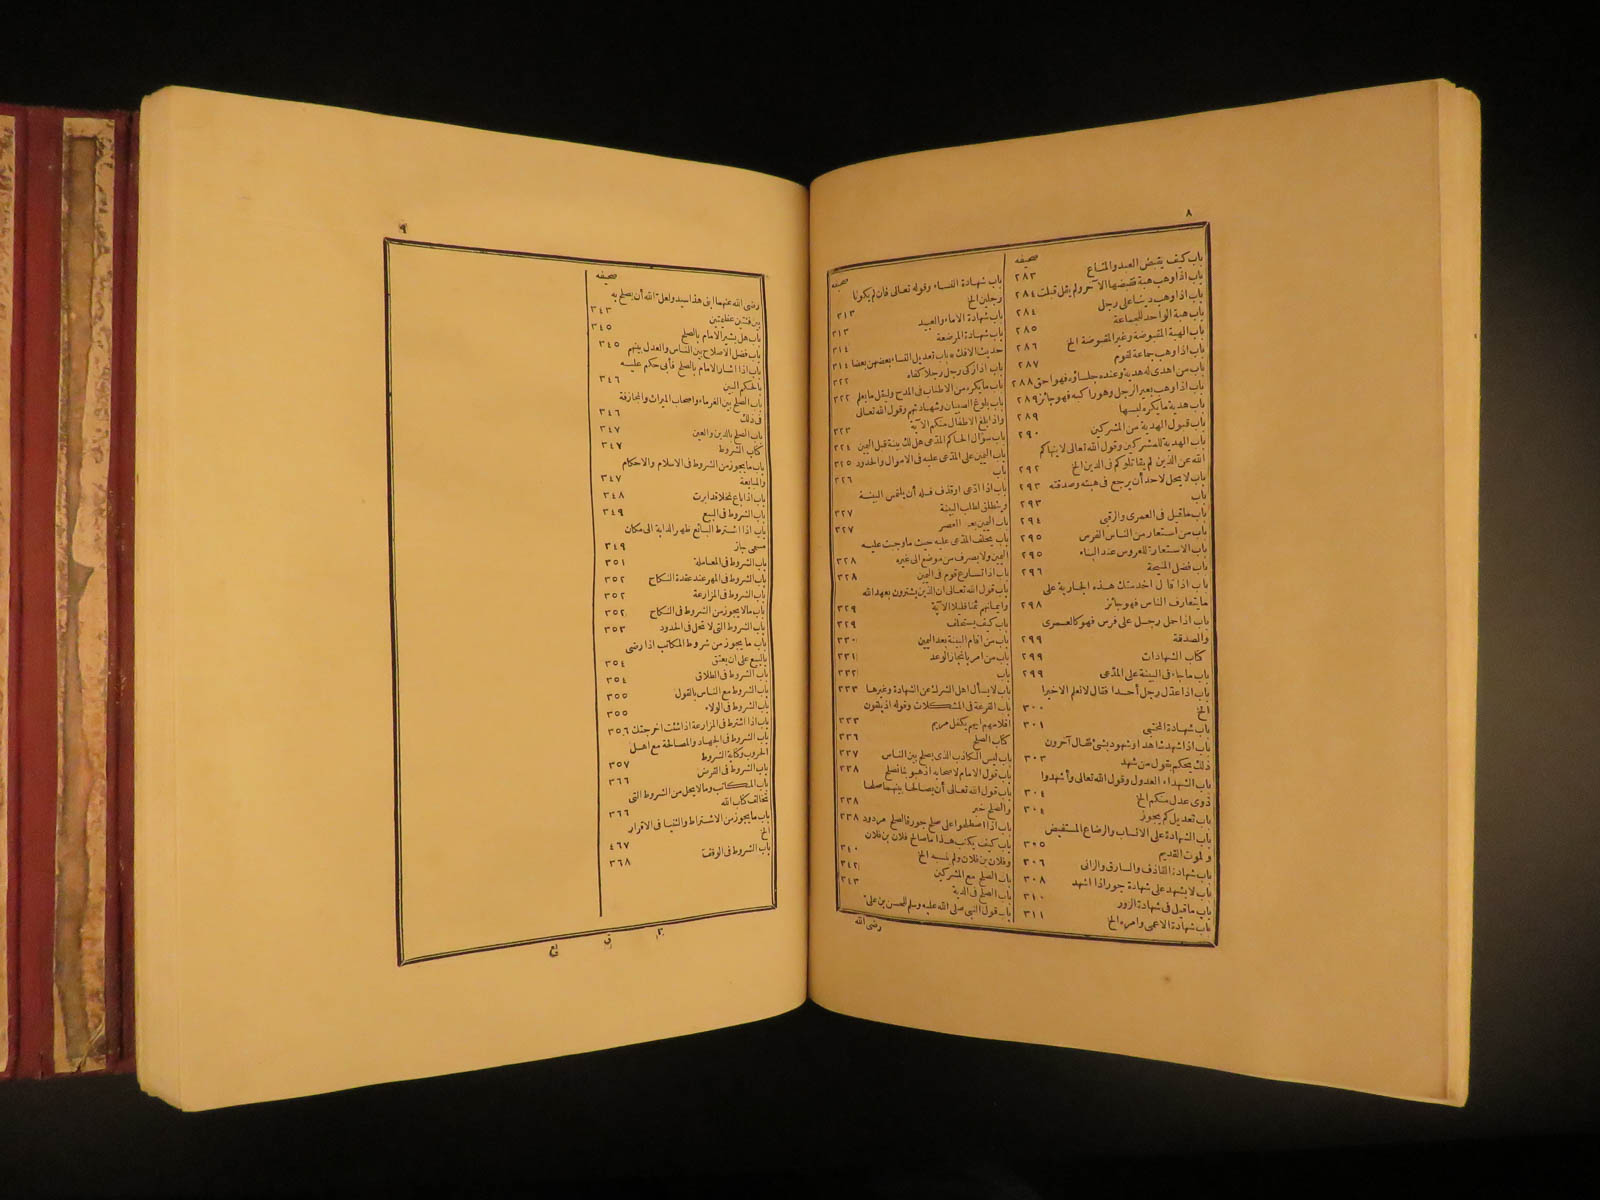 ٨
صحيفه
باب كيف يقبض العبد والمتاع ٢٨٣
باب اذا وهب هبة فقبضها الآخر ولم يقل قبلت ٢٨٤
باب اذا وهب دينا على رجل ٢٨٤
باب هبة الواحد للجماعة ٢٨٥
باب الهبة المقبوضة وغير المقبوضة الخ ٢٨٦
باب اذا وهب جماعة لقوم ٢٨٧
باب من اهدى له هدية وعنده جلساؤه فهو احق ٢٨٨
باب اذا وهب بعير الرجل وهو راكبه فهو جائز ٢٨٩
باب هدية ما يكره لبسها ٢٨٩
باب قبول الهدية من المشركين ٢٩٠
باب الهدية للمشركين وقول الله تعالى لا ينهاكم
الله عن الذين لم يقاتلوكم فى الدين الخ ٢٩٢
باب لا يحل لاحد أن يرجع فى هبته وصدقته ٢٩٣
باب ٢٩٣
باب ما قيل فى العمرى والرقبى ٢٩٤
باب من استعار من الناس الفرس ٢٩٥
باب الاستعارة للعروس عند البناء ٢٩٥
باب فضل المنيحة ٢٩٦
باب اذا قال اخدمتك هذه الجارية على
ما يتعارف الناس فهو جائز ٢٩٨
باب اذا حمل رجل على فرس فهو كالعمرى
والصدقة ٢٩٩
كتاب الشهادات ٢٩٩
باب ما جاء فى البينة على المدّعى ٢٩٩
باب اذا عدّل رجل أحدا فقال لا نعلم الاخيرا
الخ ٣٠٠
باب شهادة المختبى ٣٠١
باب اذا شهد شاهد او شهود بشئ فقال آخرون
ذلك يحكم بقول من شهد ٣٠٣
باب الشهداء العدول وقول الله تعالى وأشهدوا
ذوى عدل منكم الخ ٣٠٤
باب تعديل كم يجوز ٣٠٤
باب الشهادة على الانساب والرضاع المستفيض
والموت القديم ٣٠٥
باب شهادة القاذف والسارق والزانى ٣٠٦
باب لا يشهد على شهادة جور اذا اشهد ٣٠٨
باب ما قيل فى شهادة الزور ٣١٠
باب شهادة الاعمى وامره الخ ٣١١
صحيفه
باب شهادة النساء وقوله تعالى فان لم يكونا
رجلين الخ ٣١٣
باب شهادة الاماء والعبيد ٣١٣
باب شهادة المرضعة ٣١٤
حديث الافك * باب تعديل النساء بعضهن بعضا ٣١٤
باب اذا زكى رجل رجلا كفاه ٣٢٢
باب ما يكره من الاطناب فى المدح وليقل ما يعلم ٣٢٢
باب بلوغ الصبيان وشهادتهم وقول الله تعالى
واذا بلغ الاطفال منكم الآية ٣٢٣
باب سؤال الحاكم المدّعى هل لك بينة قبل اليمين ٣٢٤
باب اليمين على المدّعى عليه فى الاموال والحدود ٣٢٥
باب ٣٢٦
باب اذا ادّعى او قذف فله أن يلتمس البينة
وينطلق لطلب البينة ٣٢٧
باب اليمين بعد العصر ٣٢٧
باب يحلف المدّعى عليه حيث ما وجبت عليه
اليمين ولا يصرف من موضع الى غيره ٣٢٨
باب اذا تسارع قوم فى اليمين ٣٢٨
باب قول الله تعالى ان الذين يشترون بعهد الله
وايمانهم ثمنا قليلا الآية ٣٢٩
باب كيف يستحلف ٣٢٩
باب من اقام البينة بعد اليمين ٣٣٠
باب من امر بانجاز الوعد ٣٣١
باب ٣٣٢
باب لا يسأل اهل الشرك عن الشهادة وغيرها ٣٣٣
باب القرعة فى المشكلات وقوله اذ يلقون
اقلامهم ايهم يكفل مريم ٣٣٣
كتاب الصلح ٣٣٦
باب ليس الكاذب الذى يصلح بين الناس ٣٣٧
باب قول الامام لاصحابه اذهبوا بنا نصلح ٣٣٨
باب قول الله تعالى أن يصالحا بينهما صلحا
والصلح خير ٣٣٨
باب اذا اصطلحوا على صلح جور فالصلح مردود ٣٣٨
باب كيف يكتب هذا ما صالح فلان بن فلان
وفلان بن فلان ولم ينسبه الخ ٣٤٠
باب الصلح مع المشركين ٣٤٢
باب الصلح فى الدية ٣٤٣
باب قول النبى صلى الله عليه وسلم للحسن بن على
رضى الله
٩
صحيفه
رضى الله عنهما ابنى هذا سيد ولعل الله أن يصلح به
بين فئتين عظيمتين ٣٤٣
باب هل يشير الامام بالصلح ٣٤٥
باب فضل الاصلاح بين الناس والعدل بينهم ٣٤٥
باب اذا اشار الامام بالصلح فأبى حكم عليه
بالحكم البين ٣٤٦
باب الصلح بين الغرماء واصحاب الميراث والمجازفة
فى ذلك ٣٤٦
باب الصلح بالدين والعين ٣٤٧
كتاب الشروط ٣٤٧
باب ما يجوز من الشروط فى الاسلام والاحكام
والمبايعة ٣٤٧
باب اذا باع نخلا قد ابرت ٣٤٨
باب الشروط فى البيع ٣٤٩
باب اذا اشترط البائع ظهر الدابة الى مكان
مسمى جاز ٣٤٩
باب الشروط فى المعاملة ٣٥١
باب الشروط فى المهر عند عقدة النكاح ٣٥٢
باب الشروط فى المزارعة ٣٥٢
باب ما لا يجوز من الشروط فى النكاح ٣٥٢
باب الشروط التى لا تحل فى الحدود ٣٥٣
باب ما يجوز من شروط المكاتب اذا رضى
بالبيع على ان يعتق ٣٥٤
باب الشروط فى الطلاق ٣٥٤
باب الشروط مع الناس بالقول ٣٥٥
باب الشروط فى الولاء ٣٥٥
باب اذا اشترط فى المزارعة اذا شئت اخرجتك ٣٥٦
باب الشروط فى الجهاد والمصالحة مع اهل
الحروب وكتابة الشروط ٣٥٧
باب الشروط فى القرض ٣٦٦
باب المكاتب وما لا يحل من الشروط التى
تخالف كتاب الله ٣٦٦
باب ما يجوز من الاشتراط والثنيا فى الاقرار
الخ ٤٦٧
باب الشروط فى الوقف ٣٦٨